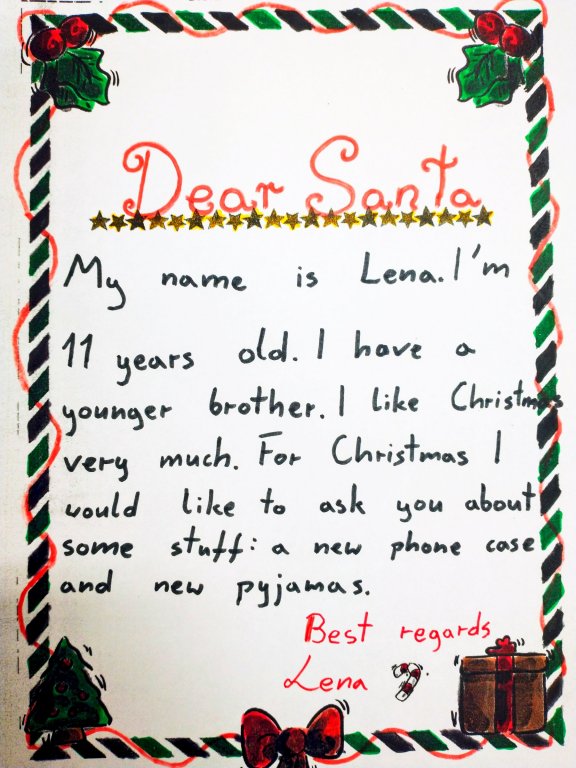 Dear Santa
My name is Lena. I'm
11 years old. I have a
younger brother. I like Christmas
very much. For Christmas I
would like to ask you about
some stuff: a new phone case
and new pyjamas.
Best regards
Lena